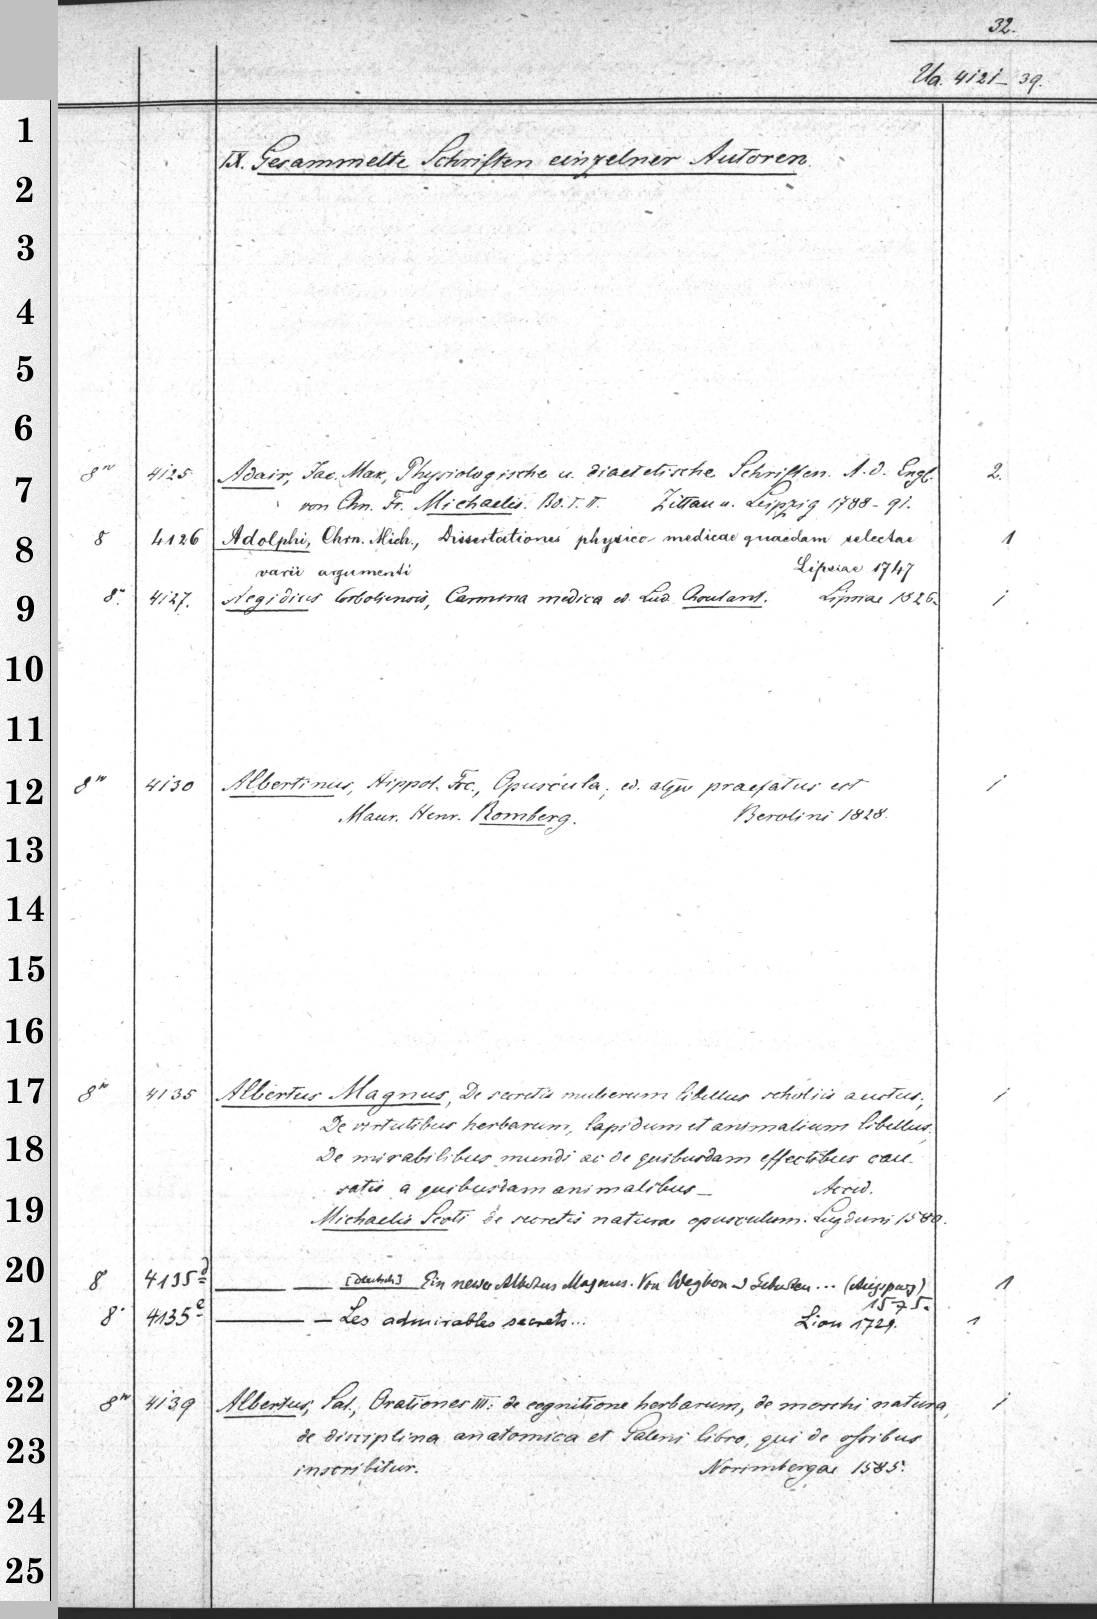 32.
Ua. 4121-39.
1
IX. Gesammelte Schriften einzelner Autoren.
2
3
4
5
6
7
8° 4125 Adair, Jac. Mak, Physiologische u. diaetetische Schriften. A. d. Engl. 2.
von Chn. Fr. Michaelis. Bd. I. II. Zittau u. Leipzig 1788-91.
8
8 4126 Adolphi, Chrn. Mich., Dissertationes physico-medicae quaedam selectae 1
varii argumenti Lipsiae 1747
9
8° 4127. Aegidius Corboliensis, Carmina medica ed. Lud. Choulant. Lipsiae 1826. 1
10
11
12
8° 4130 Albertinus, Hippol. Frc., Opuscula, ed. atque praefatus est 1
Maur. Henr. Romberg. Berolini 1828.
13
14
15
16
17
8° 4135 Albertus Magnus, De secretis mulierum libellus scholiis auctus; 1
De virtutibus herbarum, lapidum et animalium libellus;
18
De mirabilibus mundi ac de quibusdam effectibus cau-
satis a quibusdam animalibus — Acced.
19
Michaelis Scoti de secretis naturae opusculum. Lugduni 1580.
20
8 4135 d — — [deutsch] Ein newer Albertus Magnus. Von Weybern u Geburten ... (Augspurg) 1
1575.
21
8° 4135 e — — Les admirables secrets ... Lion 1729. 1
22
8° 4139 Albertus, Sal., Orationes III: de cognitione herbarum, de moschi natura, 1
23
de disciplina anatomica et Galeni libro, qui de ossibus
inscribitur. Norimbergae 1585.
24
25